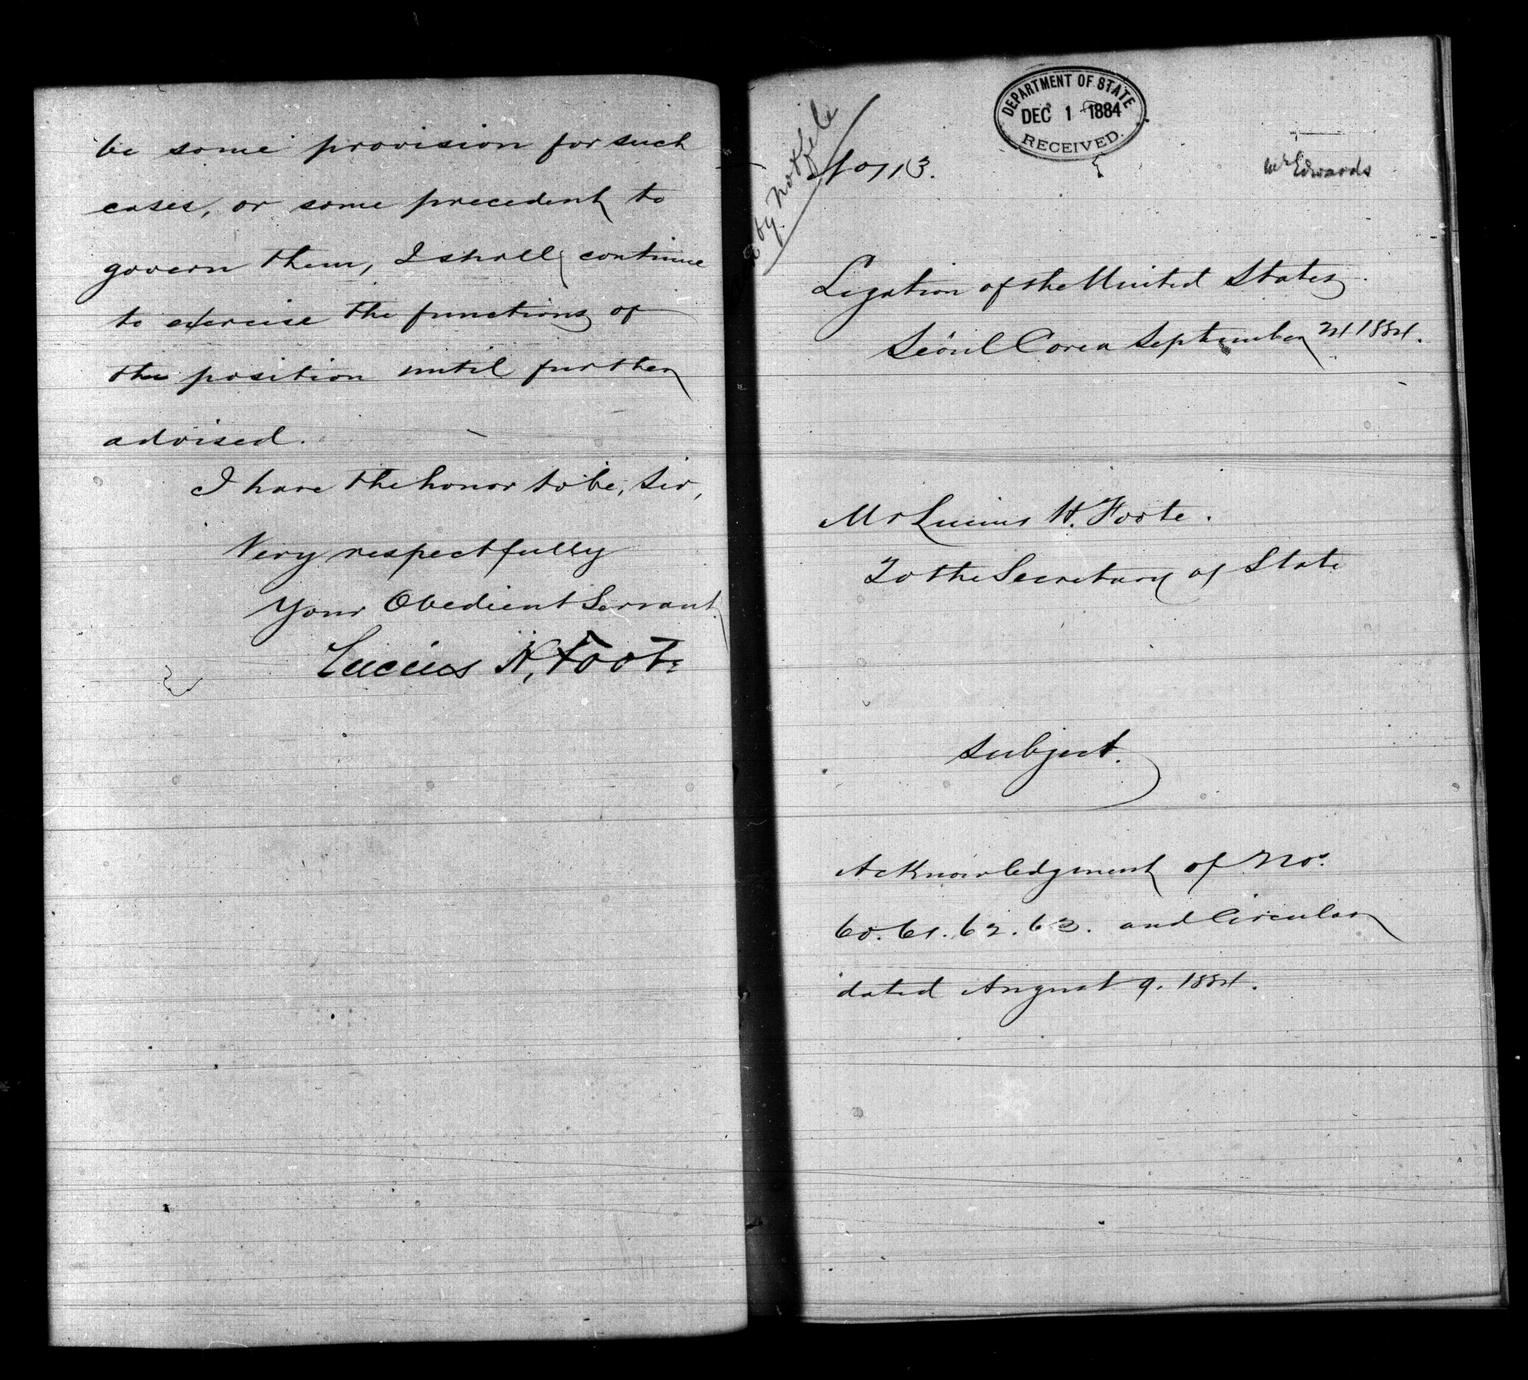 be some provision for such
cases, or some precedent to
govern them, I shall continue
to exercise the functions of
the position until further
advised.
I have the honor to be, Sir,
Very respectfully
Your Obedient Servant
Lucius H. Foote
DEPARTMENT OF STATE
DEC 1 1884
RECEIVED.
No 113.
Mr Edwards
Legation of the United States
Seóul Corea September 24 1884.
Mr Lucius H. Foote.
To the Secretary of State
Subject.
Acknowledgment of Nos.
60. 61. 62. 63. and Circular
dated August 9. 1884.